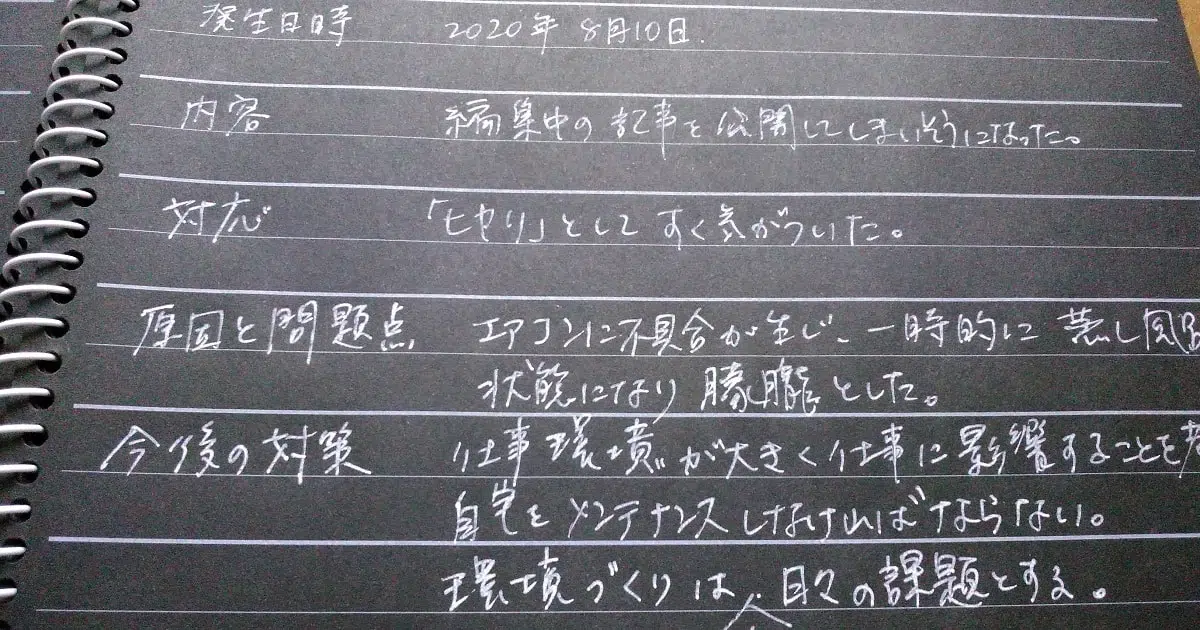 発生日時 2020年 8月10日.
内容 編集中の記事を公開してしまいそうになった。
対応 「ヒヤリ」として すぐ気がついた。
原因と問題点 エアコンに不具合が生じ、一時的に 蒸し風
状態になり 朦朧とした。
今後の対策 仕事環境が大きく仕事に影響することを
自宅をメンテナンスしなければならない。
環境づくりは、日々の課題とする。